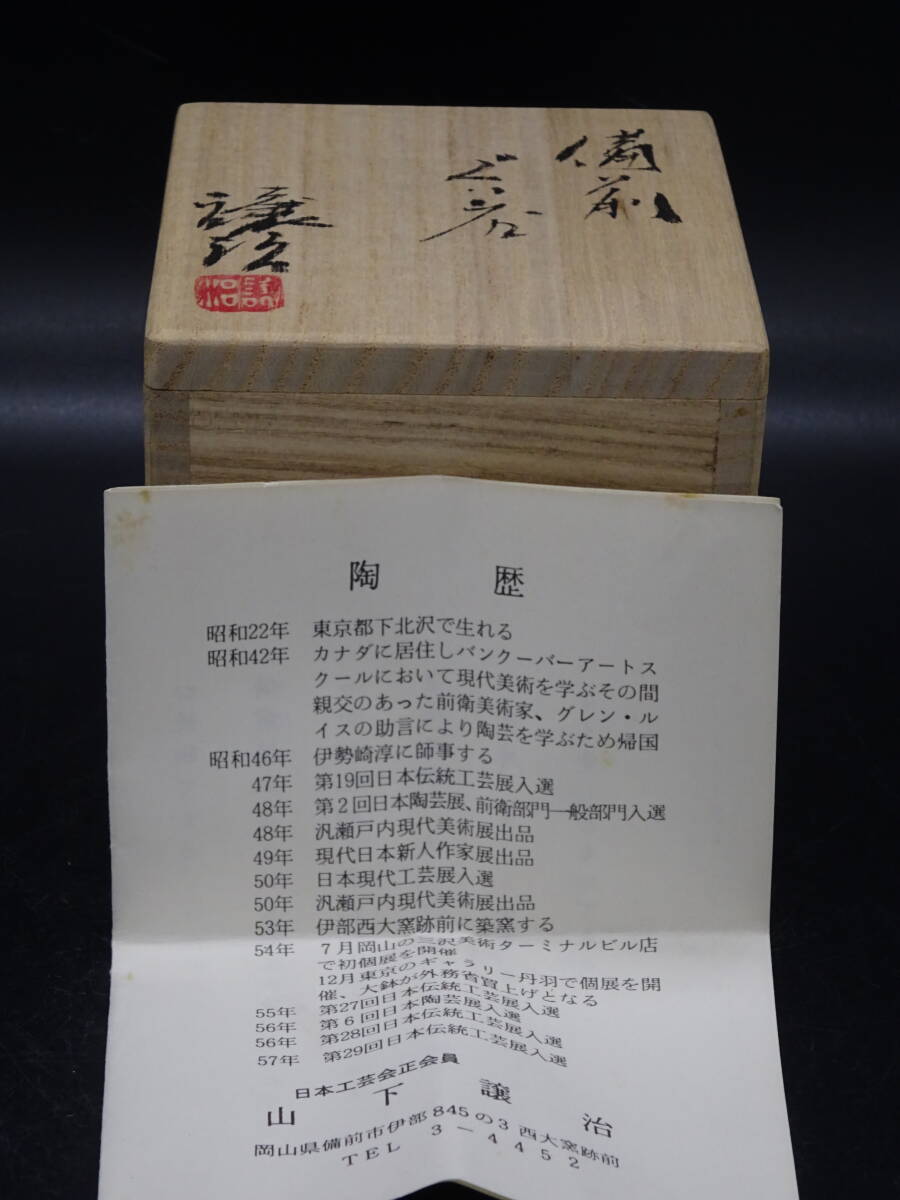 備前
ぐい呑
譲治
譲治
陶歴
昭和22年 東京都下北沢で生れる
昭和42年 カナダに居住しバンクーバーアートス
クールにおいて現代美術を学ぶその間
親交のあった前衛美術家、グレン・ル
イスの助言により陶芸を学ぶため帰国
昭和46年 伊勢崎淳に師事する
47年 第19回日本伝統工芸展入選
48年 第2回日本陶芸展、前衛部門一般部門入選
48年 汎瀬戸内現代美術展出品
49年 現代日本新人作家展出品
50年 日本現代工芸展入選
50年 汎瀬戸内現代美術展出品
53年 伊部西大窯跡前に築窯する
54年 7月岡山の三沢美術ターミナルビル店
で初個展を開催
12月東京のギャラリー丹羽で個展を開
催、大鉢が外務省買上げとなる
55年 第27回日本伝統工芸展入選
56年 第6回日本陶芸展入選
56年 第28回日本伝統工芸展入選
57年 第29回日本伝統工芸展入選
日本工芸会正会員
山下譲治
岡山県備前市伊部845の3 西大窯跡前
TEL 3－4452